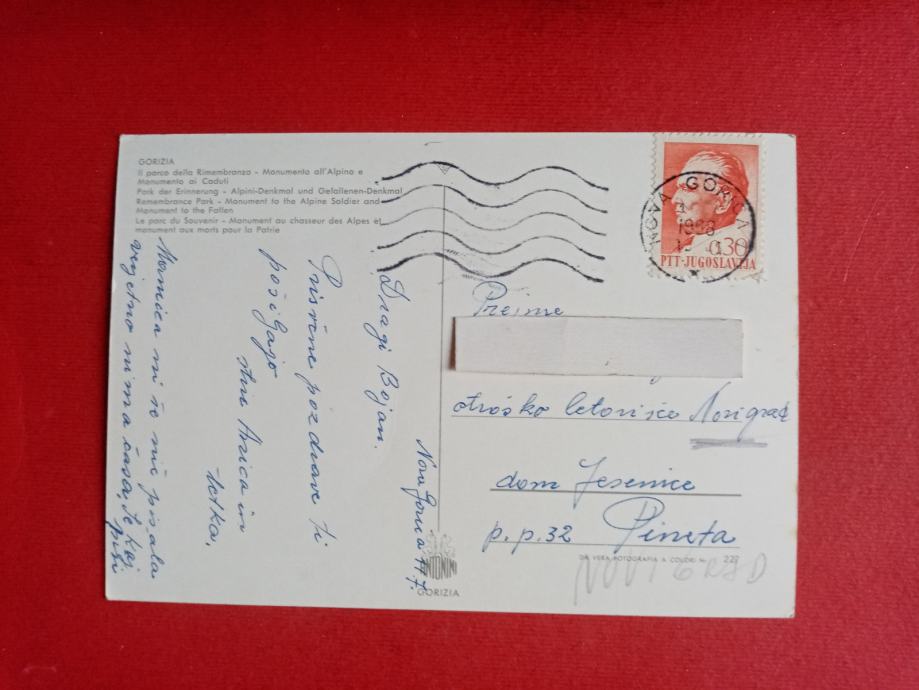 GORIZIA
Il parco della Rimembranza - Monumento all'Alpino e
Monumento ai Caduti
Park der Erinnerung - Alpini-Denkmal und Gefallenen-Denkmal
Remembrance Park - Monument to the Alpine Soldier and
Monument to the Fallen
Le parc du Souvenir - Monument au chasseur des Alpes et
monument aux morts pour la Patrie
Nova Gorica
Dragi Bojan.
Prisrčne pozdrave ti
pošiljajo
in
tetka.
Mamica ni še nič pisala
verjetno nima časa, še kaj
piši
NOVA GORICA
0.30
PTT-JUGOSLAVIJA
Prejme
otroško letovišče Novigrad
dom Jesenice
p.p. 32 Pineta
DA VERA FOTOGRAFIA A COLORI Nr. 227
NOVIGRAD
GORIZIA